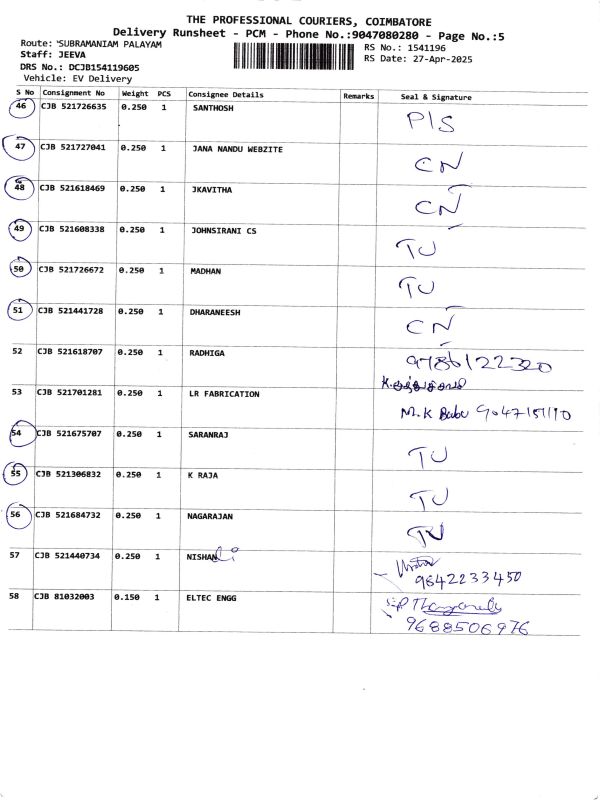 THE PROFESSIONAL COURIERS, COIMBATORE
Delivery Runsheet - PCM - Phone No.:9047080280 - Page No.:5
Route: SUBRAMANIAM PALAYAM
RS No.: 1541196
Staff: JEEVA
RS Date: 27-Apr-2025
DRS No.: DCJB154119605
Vehicle: EV Delivery
S No Consignment No Weight PCS Consignee Details Remarks Seal & Signature
46 CJB 521726635 0.250 1 SANTHOSH P/S
47 CJB 521727041 0.250 1 JANA NANDU WEBZITE CN
48 CJB 521618469 0.250 1 JKAVITHA CN
49 CJB 521608338 0.250 1 JOHNSIRANI CS TU
50 CJB 521726672 0.250 1 MADHAN TU
51 CJB 521441728 0.250 1 DHARANEESH CN
52 CJB 521618707 0.250 1 RADHIGA 9786122320
53 CJB 521701281 0.250 1 LR FABRICATION M.K Babu
54 CJB 521675707 0.250 1 SARANRAJ TU
55 CJB 521306832 0.250 1 K RAJA TU
56 CJB 521684732 0.250 1 NAGARAJAN TU
57 CJB 521440734 0.250 1 NISHAN
9842233450
58 CJB 81032003 0.150 1 ELTEC ENGG
9688506976